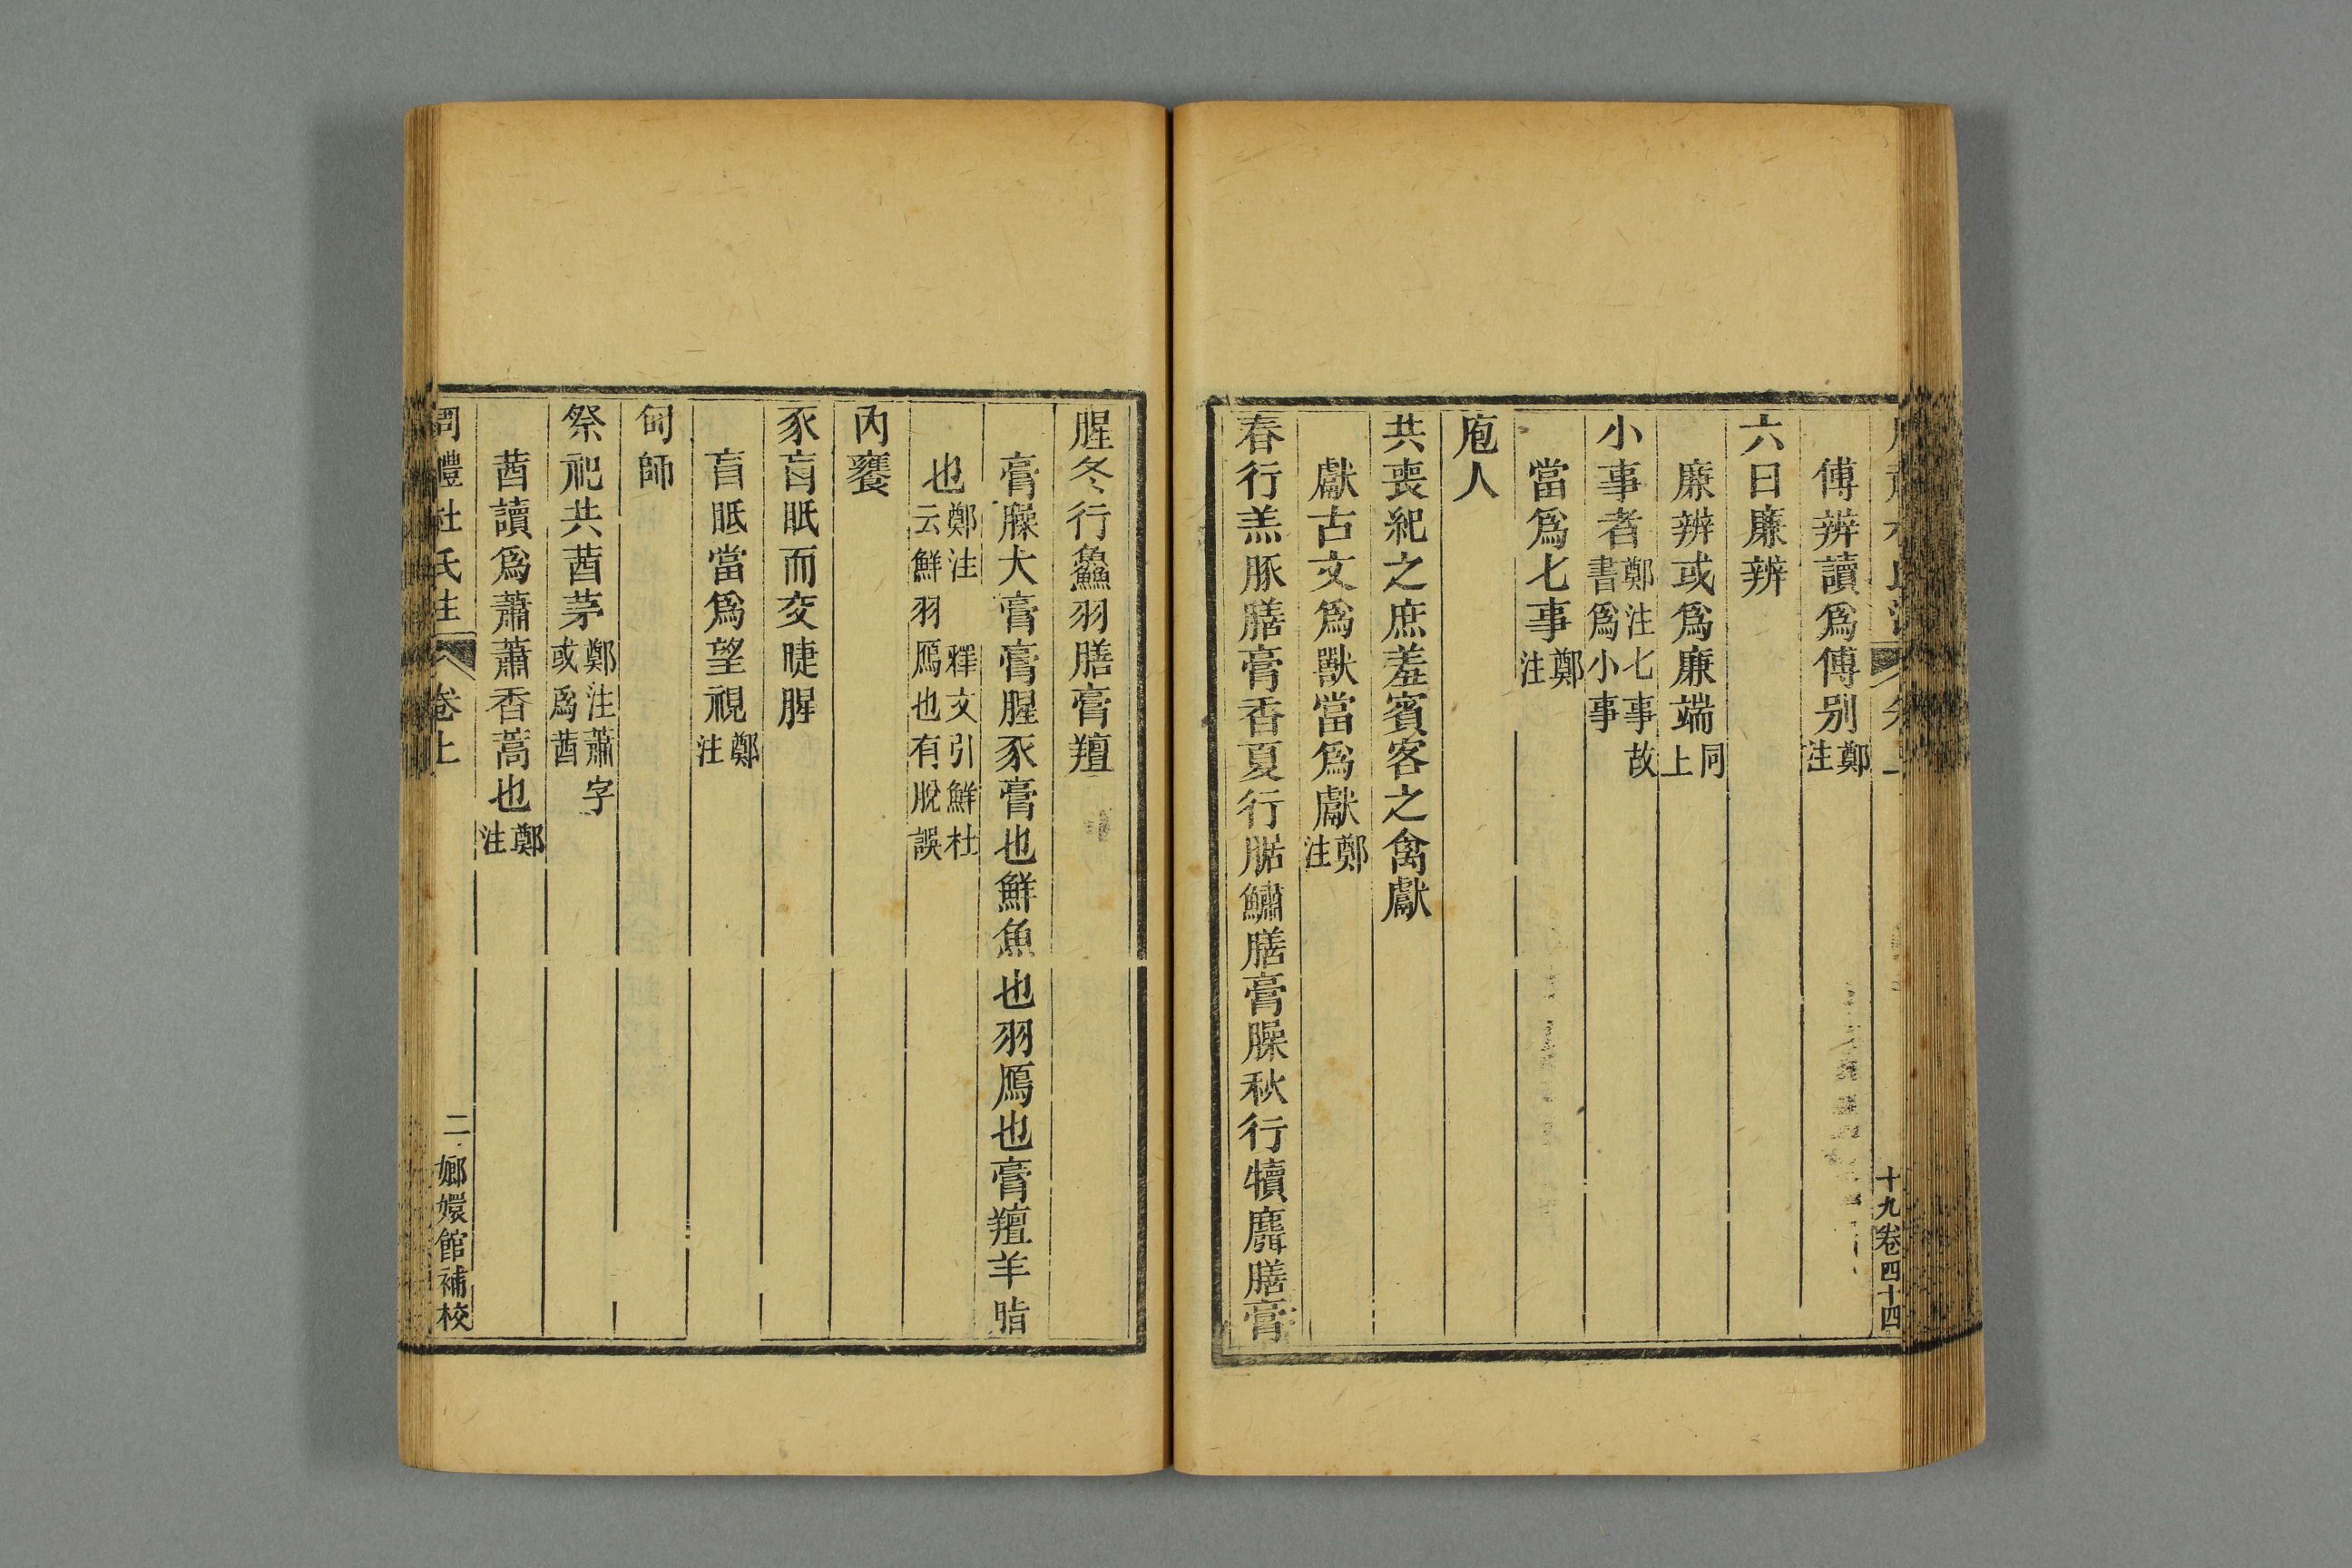 十九卷四十四
傅辨讀爲傅别鄭注
六曰廉辨
廉辨或爲廉端同上
小事者鄭注七事故書爲小事
當爲七事鄭注
庖人
共喪紀之庶羞賓客之禽獻
獻古文爲獸當爲獻鄭注
春行羔豚膳膏香夏行腒鱐膳膏臊秋行犢麛膳膏
腥冬行鱻羽膳膏羶
膏臊犬膏膏腥豕膏也鮮魚也羽鴈也膏羶羊脂
也鄭注 釋文引鮮杜云鮮羽鴈也有脫誤
內饔
豕盲眂而交睫腥
盲眂當爲望視鄭注
甸師
祭祀共茜茅鄭注蕭字或爲茜
茜讀爲蕭蕭香蒿也鄭注
周禮杜氏注 卷上 二 嫏嬛館補校